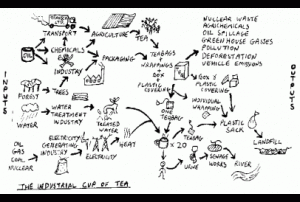 TRANSPORT
AGRICULTURE
TEA
OIL
CHEMICALS
INDUSTRY
PACKAGING
TEABAGS
WRAPPINGS
BOX
+
PLASTIC
COVERING
BOX &
PLASTIC
COVERING
NUCLEAR WASTE
AGRICHEMICALS
OIL SPILLAGE
GREENHOUSE GASSES
POLLUTION
DEFORESTATION
VEHICLE EMISSIONS
INPUTS
OUTPUTS
FOREST
TREES
WATER
WATER
TREATMENT
INDUSTRY
TREATED
WATER
TEABAG
INDIVIDUAL
WRAPPING
PLASTIC
SACK
LANDFILL
OIL
GAS
COAL
NUCLEAR
ELECTRICITY
GENERATING
INDUSTRY
ELECTRICITY
HEAT
x 20
TEABAG
URINE
SEWAGE
WORKS
RIVER
THE INDUSTRIAL CUP OF TEA